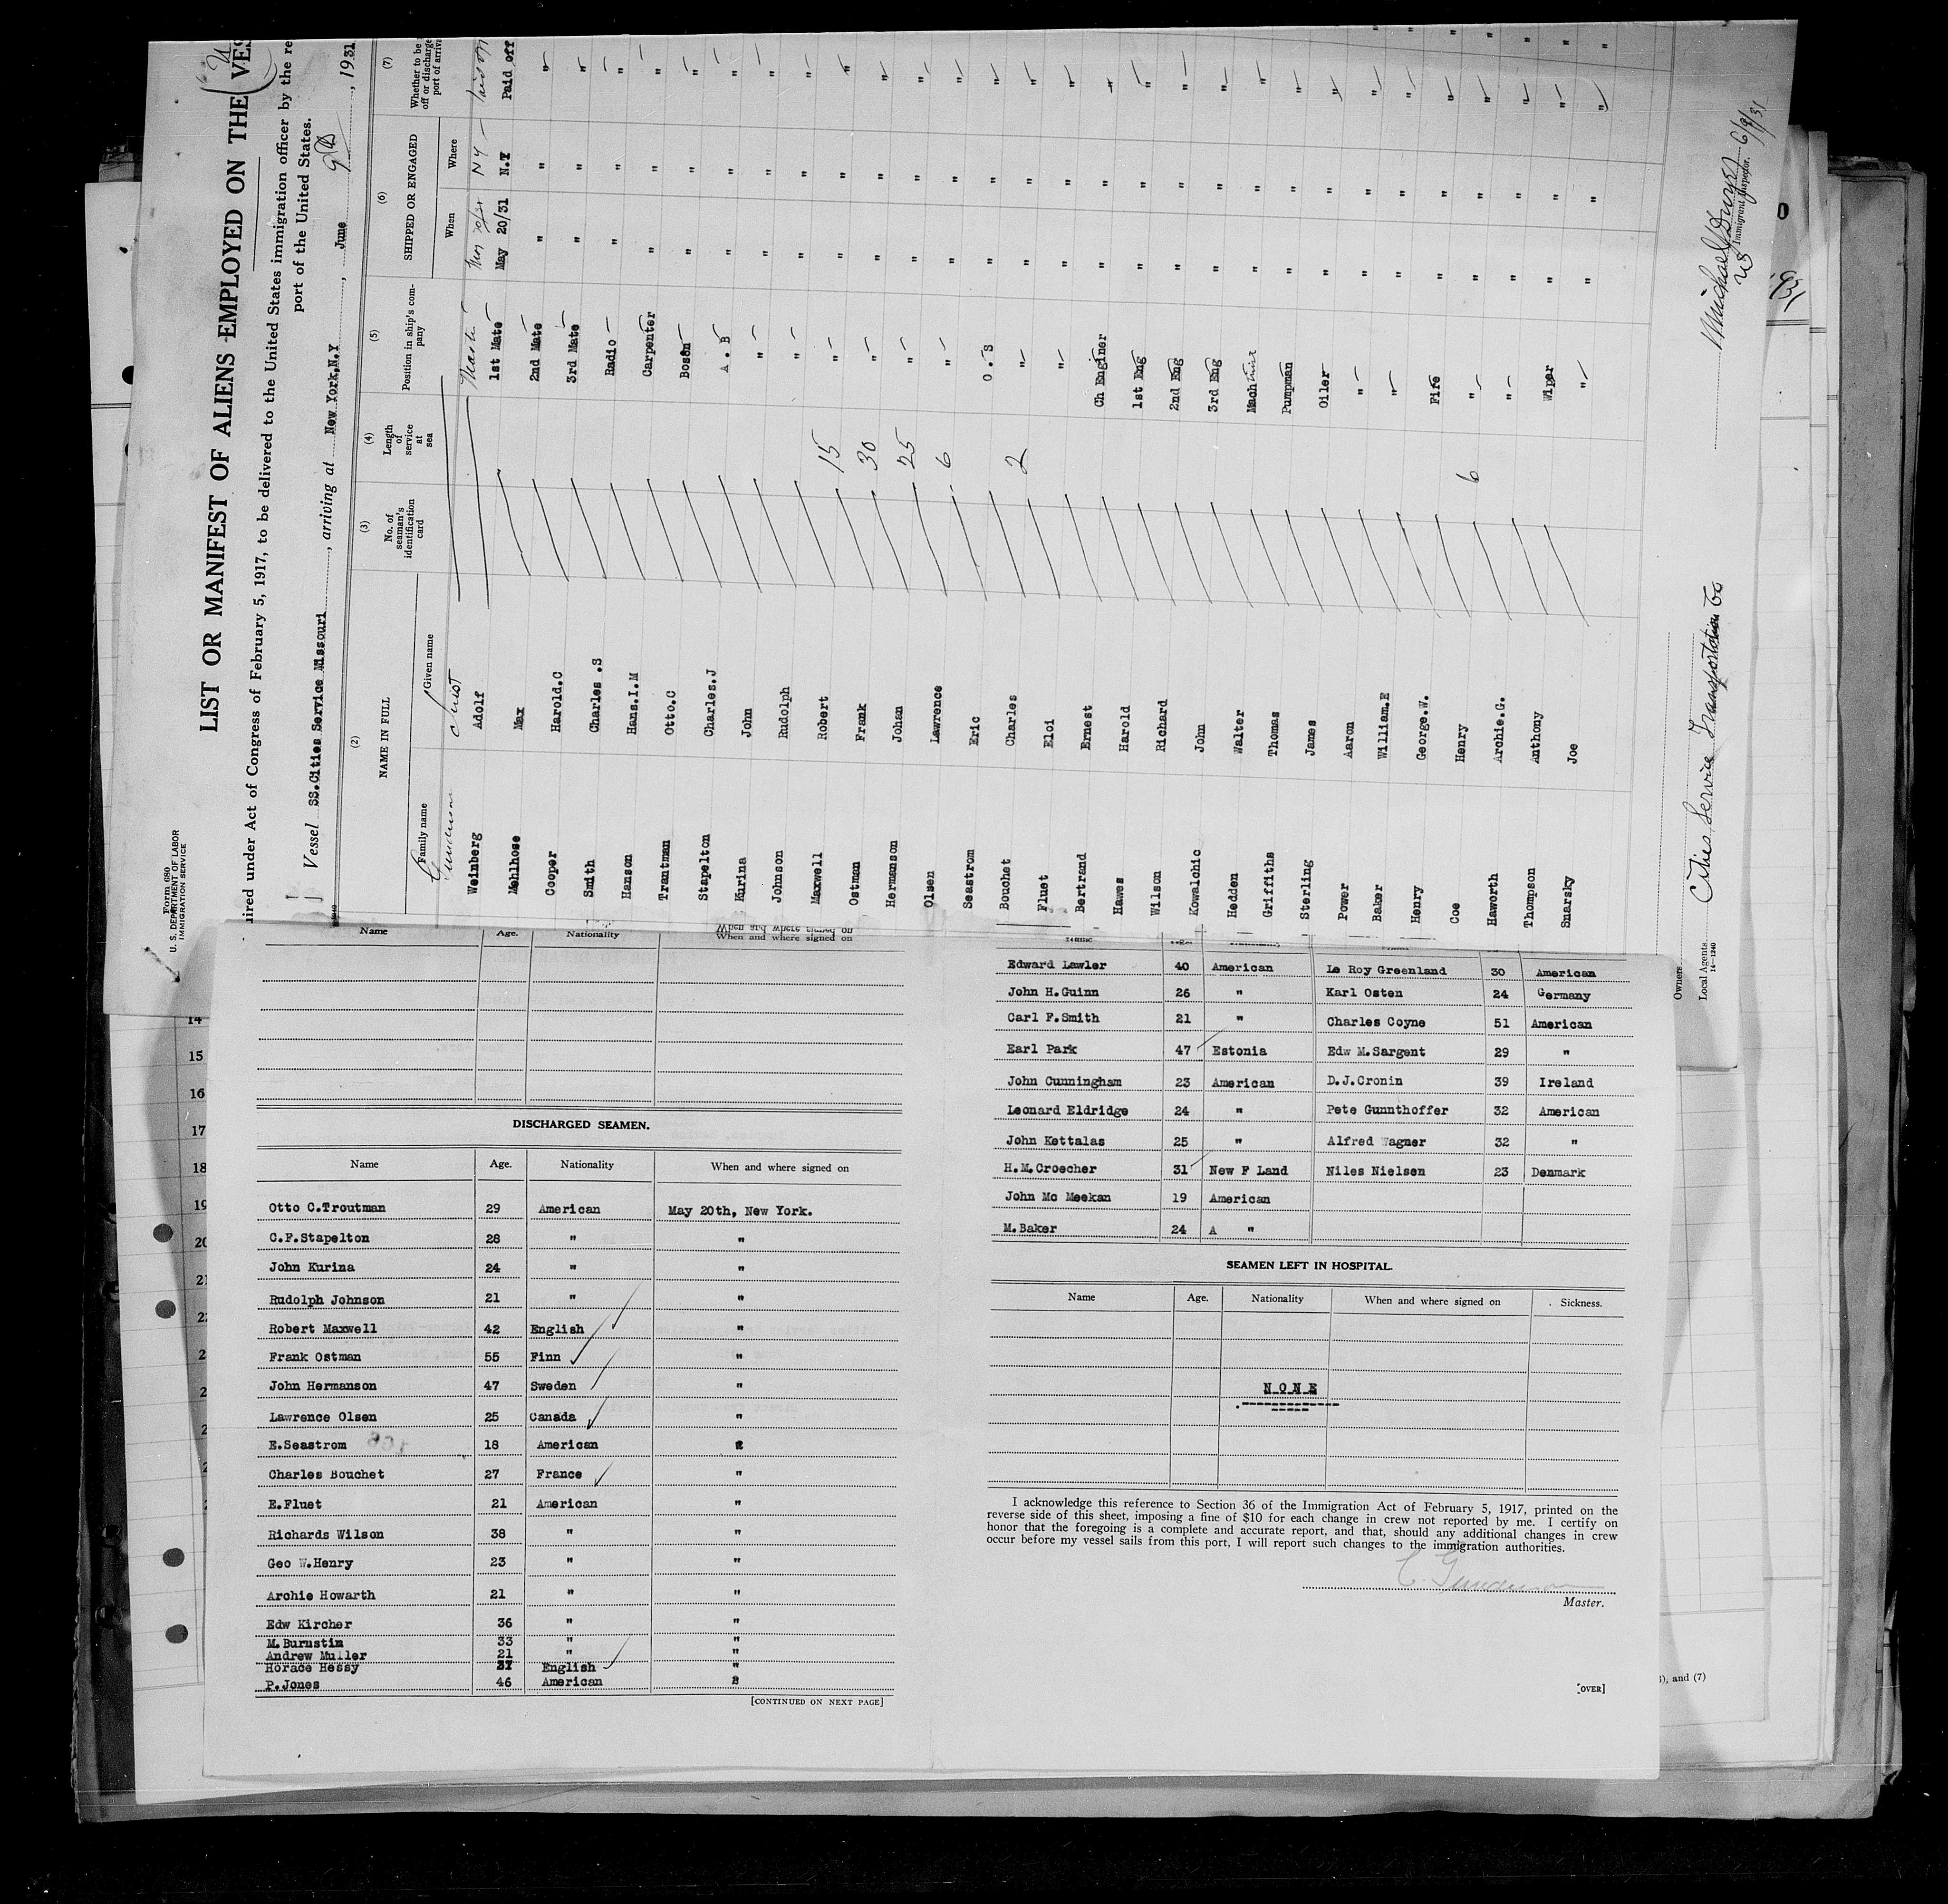 Form 680
U. S. DEPARTMENT OF LABOR
IMMIGRATION SERVICE
LIST OR MANIFEST OF ALIENS EMPLOYED ON THE VES
uired under Act of Congress of February 5, 1917, to be delivered to the United States immigration officer by the re
port of the United States.
Vessel SS.Cities Service Missouri, arriving at New York,N.Y, June 9th, 1931
(2) (3) (4) (5) (6) (7)
NAME IN FULL
No. of seaman's identification card
Length of service at sea
Position in ship's company
SHIPPED OR ENGAGED
Whether to be off or discharge port of arriv
Family name Given name When Where
Gunderson Christ Master May 20/31 NY
Weinberg Adolf 1st Mate May 20/31 N.Y Paid off
Mehlhose Max 2nd Mate " " "
Cooper Harold.C 3rd Mate " " "
Smith Charles .S Radio " " "
Hanson Hans.I.M Carpenter " " "
Trantman Otto.C Bosen " " "
Stapelton Charles.J A.B " " "
Kurina John " " " "
Johnson Rudolph " " " "
Maxwell Robert 15 " " " "
Ostman Frank 30 " " " "
Hermanson Johan 25 " " " "
Olsen Lawrence 6 " " " "
Seastrom Eric O.S " " "
Bouchet Charles 2 " " " "
Fluet Eloi " " " "
Bertrand Ernest Ch Enginer " " "
Hawes Harold 1st Eng " " "
Wilson Richard 2nd Eng " " "
Kowalchic John 3rd Eng " " "
Hedden Walter Mach " " "
Griffiths Thomas Pumpman " " "
Sterling James Oiler " " "
Power Aaron " " " "
Baker William.E " " " "
Henry George.W. Fire " " "
Coe Henry 6 " " " "
Haworth Archie.G. " " " "
Thompson Anthony Wiper " " "
Snarsky Joe " " " "
Owners
Local Agents
14-1240
Cities Service Transportation Co
Immigrant Inspector.
6/9/31
Name Age. Nationality When and where signed on
DISCHARGED SEAMEN.
Name Age. Nationality When and where signed on
Otto C.Troutman 29 American May 20th, New York.
C.F.Stapelton 28 " "
John Kurina 24 " "
Rudolph Johnson 21 " "
Robert Maxwell 42 English "
Frank Ostman 55 Finn "
John Hermanson 47 Sweden "
Lawrence Olsen 25 Canada "
E.Seastrom 18 American "
Charles Bouchet 27 France "
E.Fluet 21 American "
Richards Wilson 38 " "
Geo W.Henry 23 " "
Archie Howarth 21 " "
Edw Kircher 36 " "
M.Burnstin 33 " "
Andrew Muller 21 " "
Horace Hessy English "
P.Jones 46 American "
[CONTINUED ON NEXT PAGE]
Edward Lawler 40 American Le Roy Greenland 30 American
John H.Guinn 26 " Karl Osten 24 Germany
Carl F.Smith 21 " Charles Coyne 51 American
Earl Park 47 Estonia Edw M.Sargent 29 "
John Cunningham 23 American D.J.Cronin 39 Ireland
Leonard Eldridge 24 " Pete Gunnthoffer 32 American
John Kettalas 25 " Alfred Wagner 32 "
H.M.Croecher 31 New F Land Niles Nielsen 23 Denmark
John Mc Meekan 19 American
M.Baker 24 A "
SEAMEN LEFT IN HOSPITAL.
Name Age. Nationality When and where signed on Sickness.
NONE
I acknowledge this reference to Section 36 of the Immigration Act of February 5, 1917, printed on the
reverse side of this sheet, imposing a fine of $10 for each change in crew not reported by me. I certify on
honor that the foregoing is a complete and accurate report, and that, should any additional changes in crew
occur before my vessel sails from this port, I will report such changes to the immigration authorities.
C. Gunderson
Master.
[OVER]
), and (7)
14
15
16
17
18
19
20
21
22